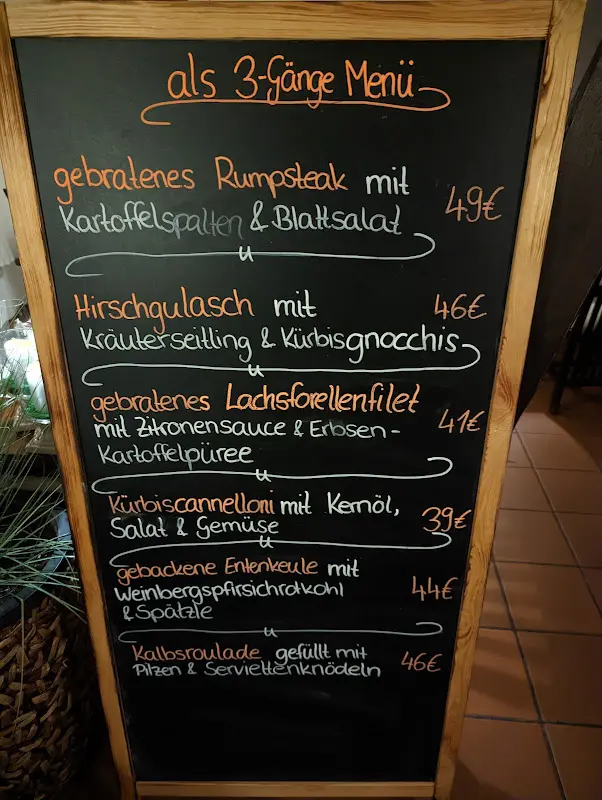 als 3-Gänge Menü
gebratenes Rumpsteak mit
Kartoffelspalten & Blattsalat
49€
Hirschgulasch mit
Kräuterseitling & Kürbisgnocchis
46€
gebratenes Lachsforellenfilet
mit Zitronensauce & Erbsen-
Kartoffelpüree
41€
Kürbiscannelloni mit Kernöl,
Salat & Gemüse
39€
gebackene Entenkeule mit
Weinbergspfirsichrotkohl
& Spätzle
44€
Kalbsroulade gefüllt mit
Pilzen & Serviettenknödeln
46€